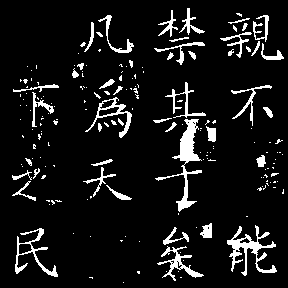 親不能
禁其子矣
凡爲天
下之民